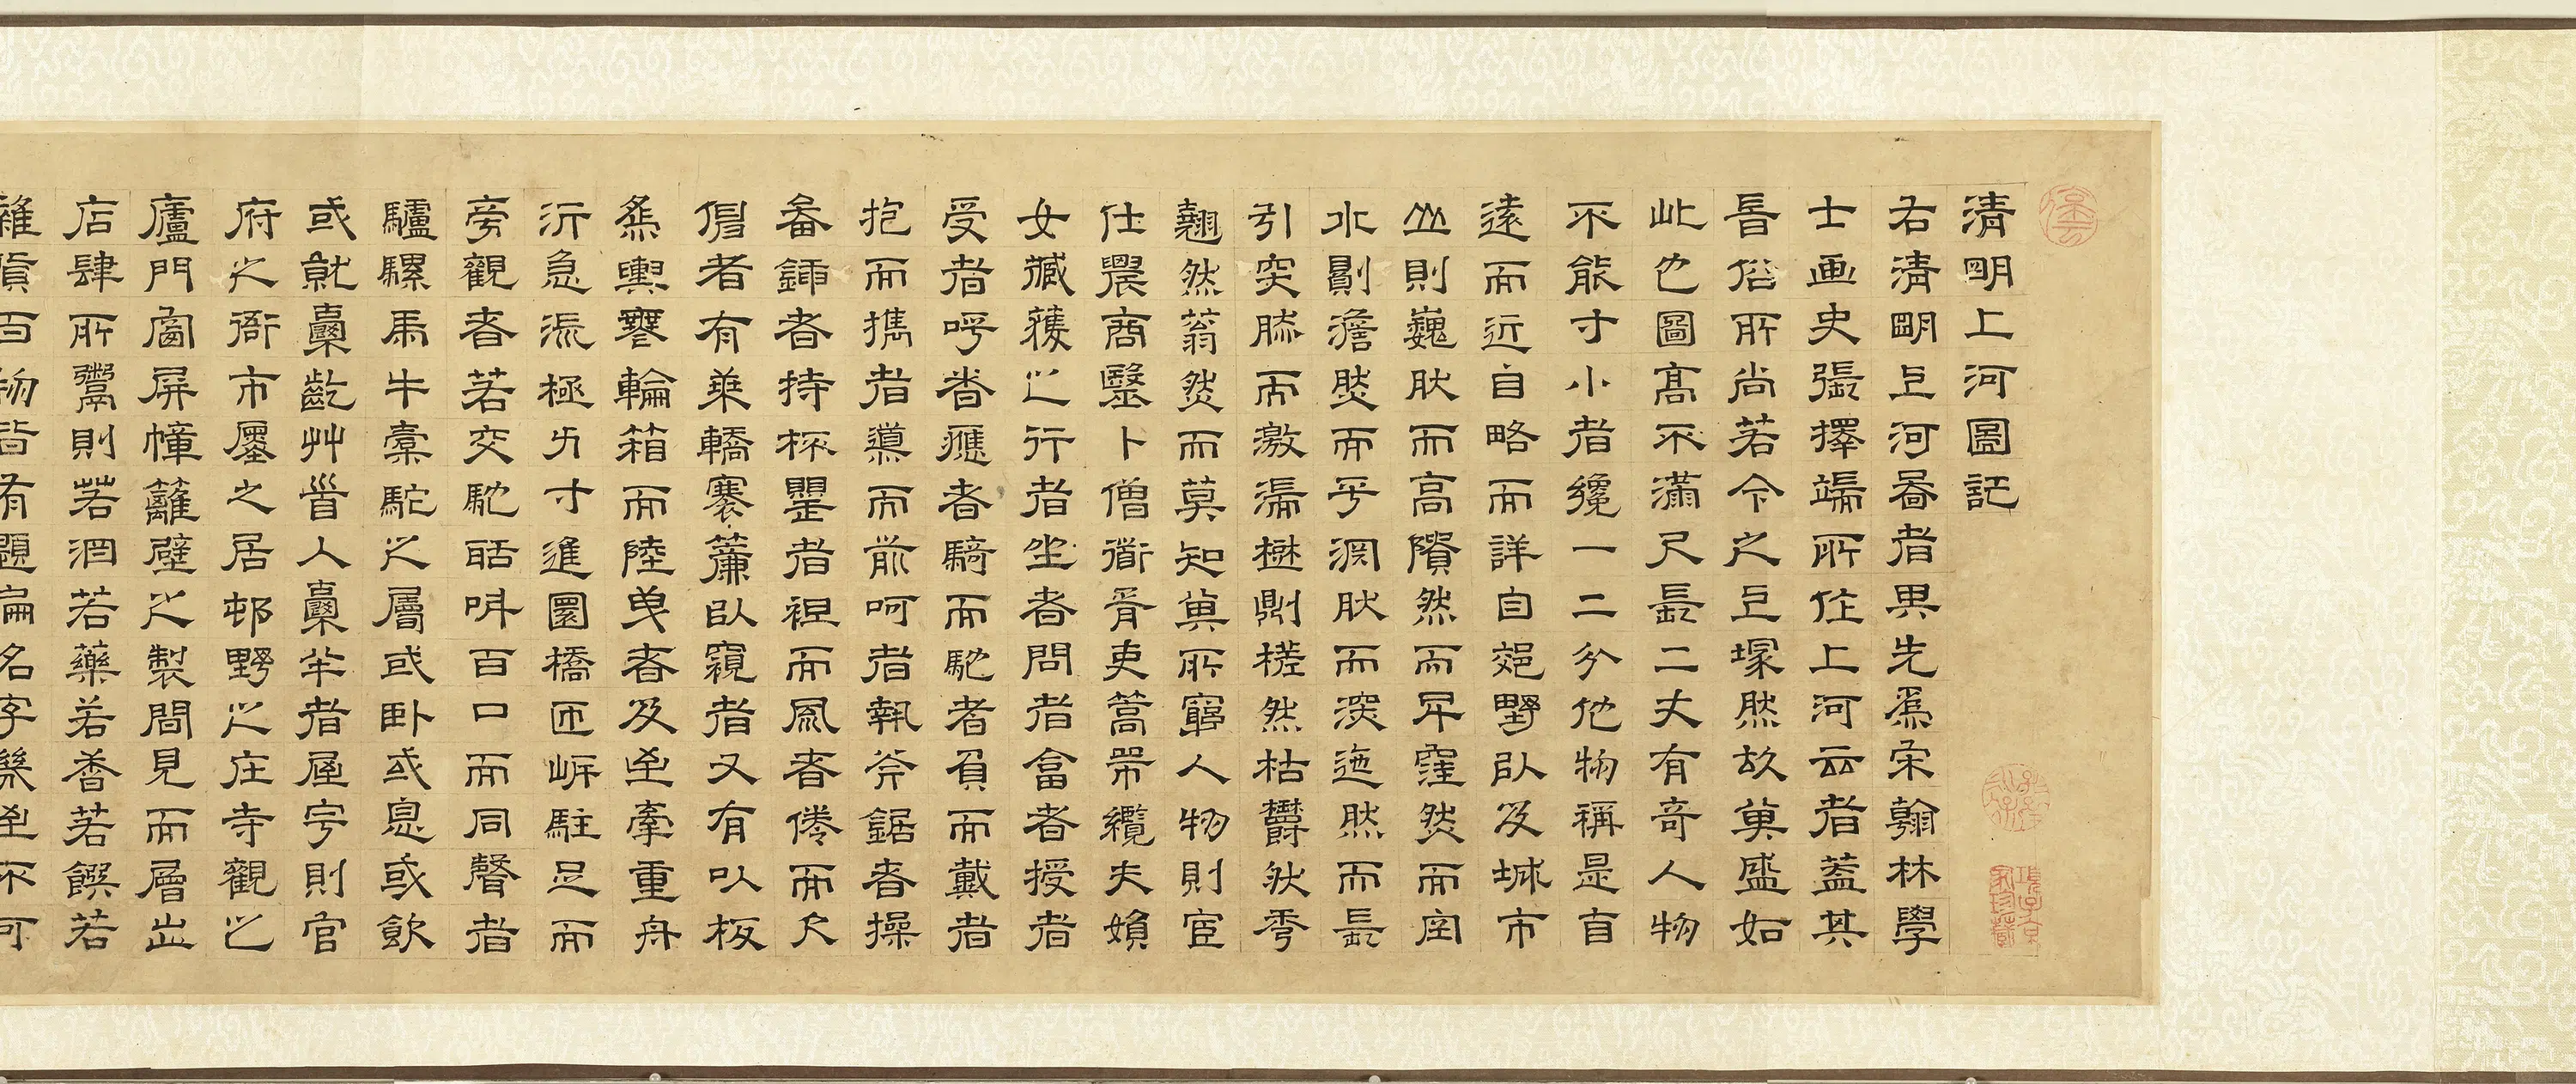 清明上河圖記
右清明上河圖者異先爲宋翰林學
士画史張擇端所作上河云者蓋其
晉俗所尚若今之上塚然故其盛如
此也圖高不滿尺長二丈有奇人物
不能寸小者纔一二分他物稱是自
遠而近自略而詳自郊野以及城市
山則巍然而高隤然而卑窪然而空
水則澹然而平淵然而深迤然而長
引突然而激湍樹則槎然枯鬱然秀
翹然蓊然而莫知其所窮人物則官
仕農商醫卜僧道胥吏篙師纜夫婦
女臧獲之行者坐者問者答者授者
受者呼者應者騎而馳者負而戴者
抱而攜者導而前呵者執斧鋸者操
畚鍤者持杯罌者袒而風者倦而欠
者有乘轎搴簾以窺者又有以板
爲輿無輪箱而陸曳者又至牽重舟
泝急流極力寸進圜橋匝岸駐足而
旁觀者若交馳聒叫百口而同聲者
驢騾馬牛橐駝之屬或臥或息或飲
或就槖齕艸首入槖半者屋宇則官
府之衙市廛之居邨野之庄寺觀之
廬門窗屏幛籬壁之製間見而層出
店肆所鬻則若酒若藥若香若饌若
雜貨百物皆有題扁名字幾至不可